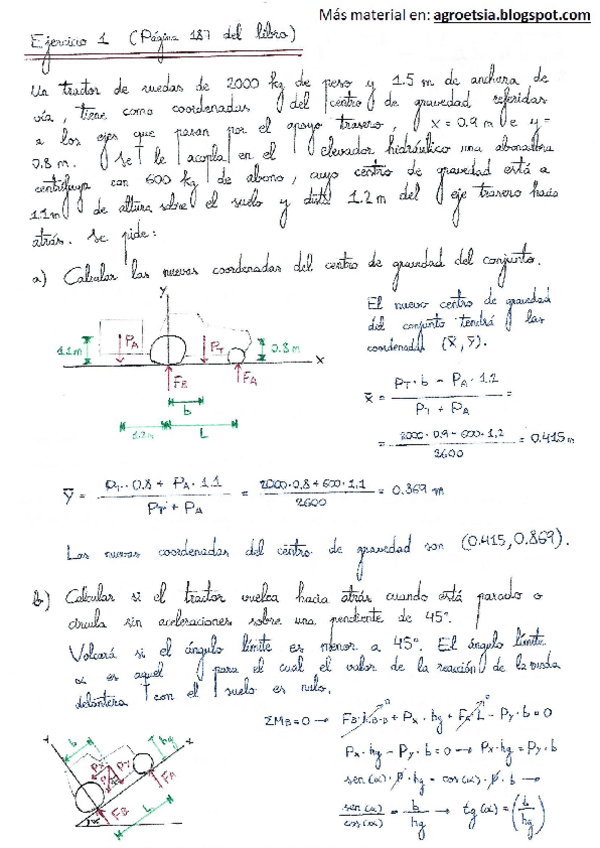 Más material en: agroetsia.blogspot.com
Ejercicio 1 (Página 187 del libro)
Un tractor de ruedas de 2000 kg de peso y 1.5 m de anchura de
vía, tiene como coordenadas del centro de gravedad referidas
a los ejes que pasan por el apoyo trasero, x = 0.9 m e y =
0.8 m. Se le acopla en el elevador hidráulico una abonadora
centrífuga con 600 kg de abono, cuyo centro de gravedad está a
1.1 m de altura sobre el suelo y dista 1.2 m del eje trasero hacia
atrás. Se pide:
a) Calcular las nuevas coordenadas del centro de gravedad del conjunto.
El nuevo centro de gravedad
del conjunto tendrá las
coordenadas (x̄, ȳ).
Y
1.1 m
P_A
P_T
0.8 m
X
F_B
F_A
b
1.2 m
L
x̄ = (P_T · b - P_A · 1.2) / (P_T + P_A) =
= (2000 · 0.9 - 600 · 1.2) / 2600 = 0.415 m
ȳ = (P_T · 0.8 + P_A · 1.1) / (P_T + P_A) = (2000 · 0.8 + 600 · 1.1) / 2600 = 0.869 m
Las nuevas coordenadas del centro de gravedad son (0.415, 0.869).
b) Calcular si el tractor vuelca hacia atrás cuando está parado o
circula sin aceleraciones sobre una pendiente de 45°.
Volcará si el ángulo límite es menor a 45°. El ángulo límite
α es aquel para el cual el valor de la reacción de la rueda
delantera con el suelo es nulo.
ΣM_B = 0 → F_B · L_B-B + P_x · hg + F_A · L - P_y · b = 0
P_x · hg - P_y · b = 0 → P_x · hg = P_y · b
sen(α) · P · hg = cos(α) · P · b →
sen(α) / cos(α) = b / hg → tg(α) = (b / hg)
Y
b
hg
X
P_x
P_y
F_A
F_B
L